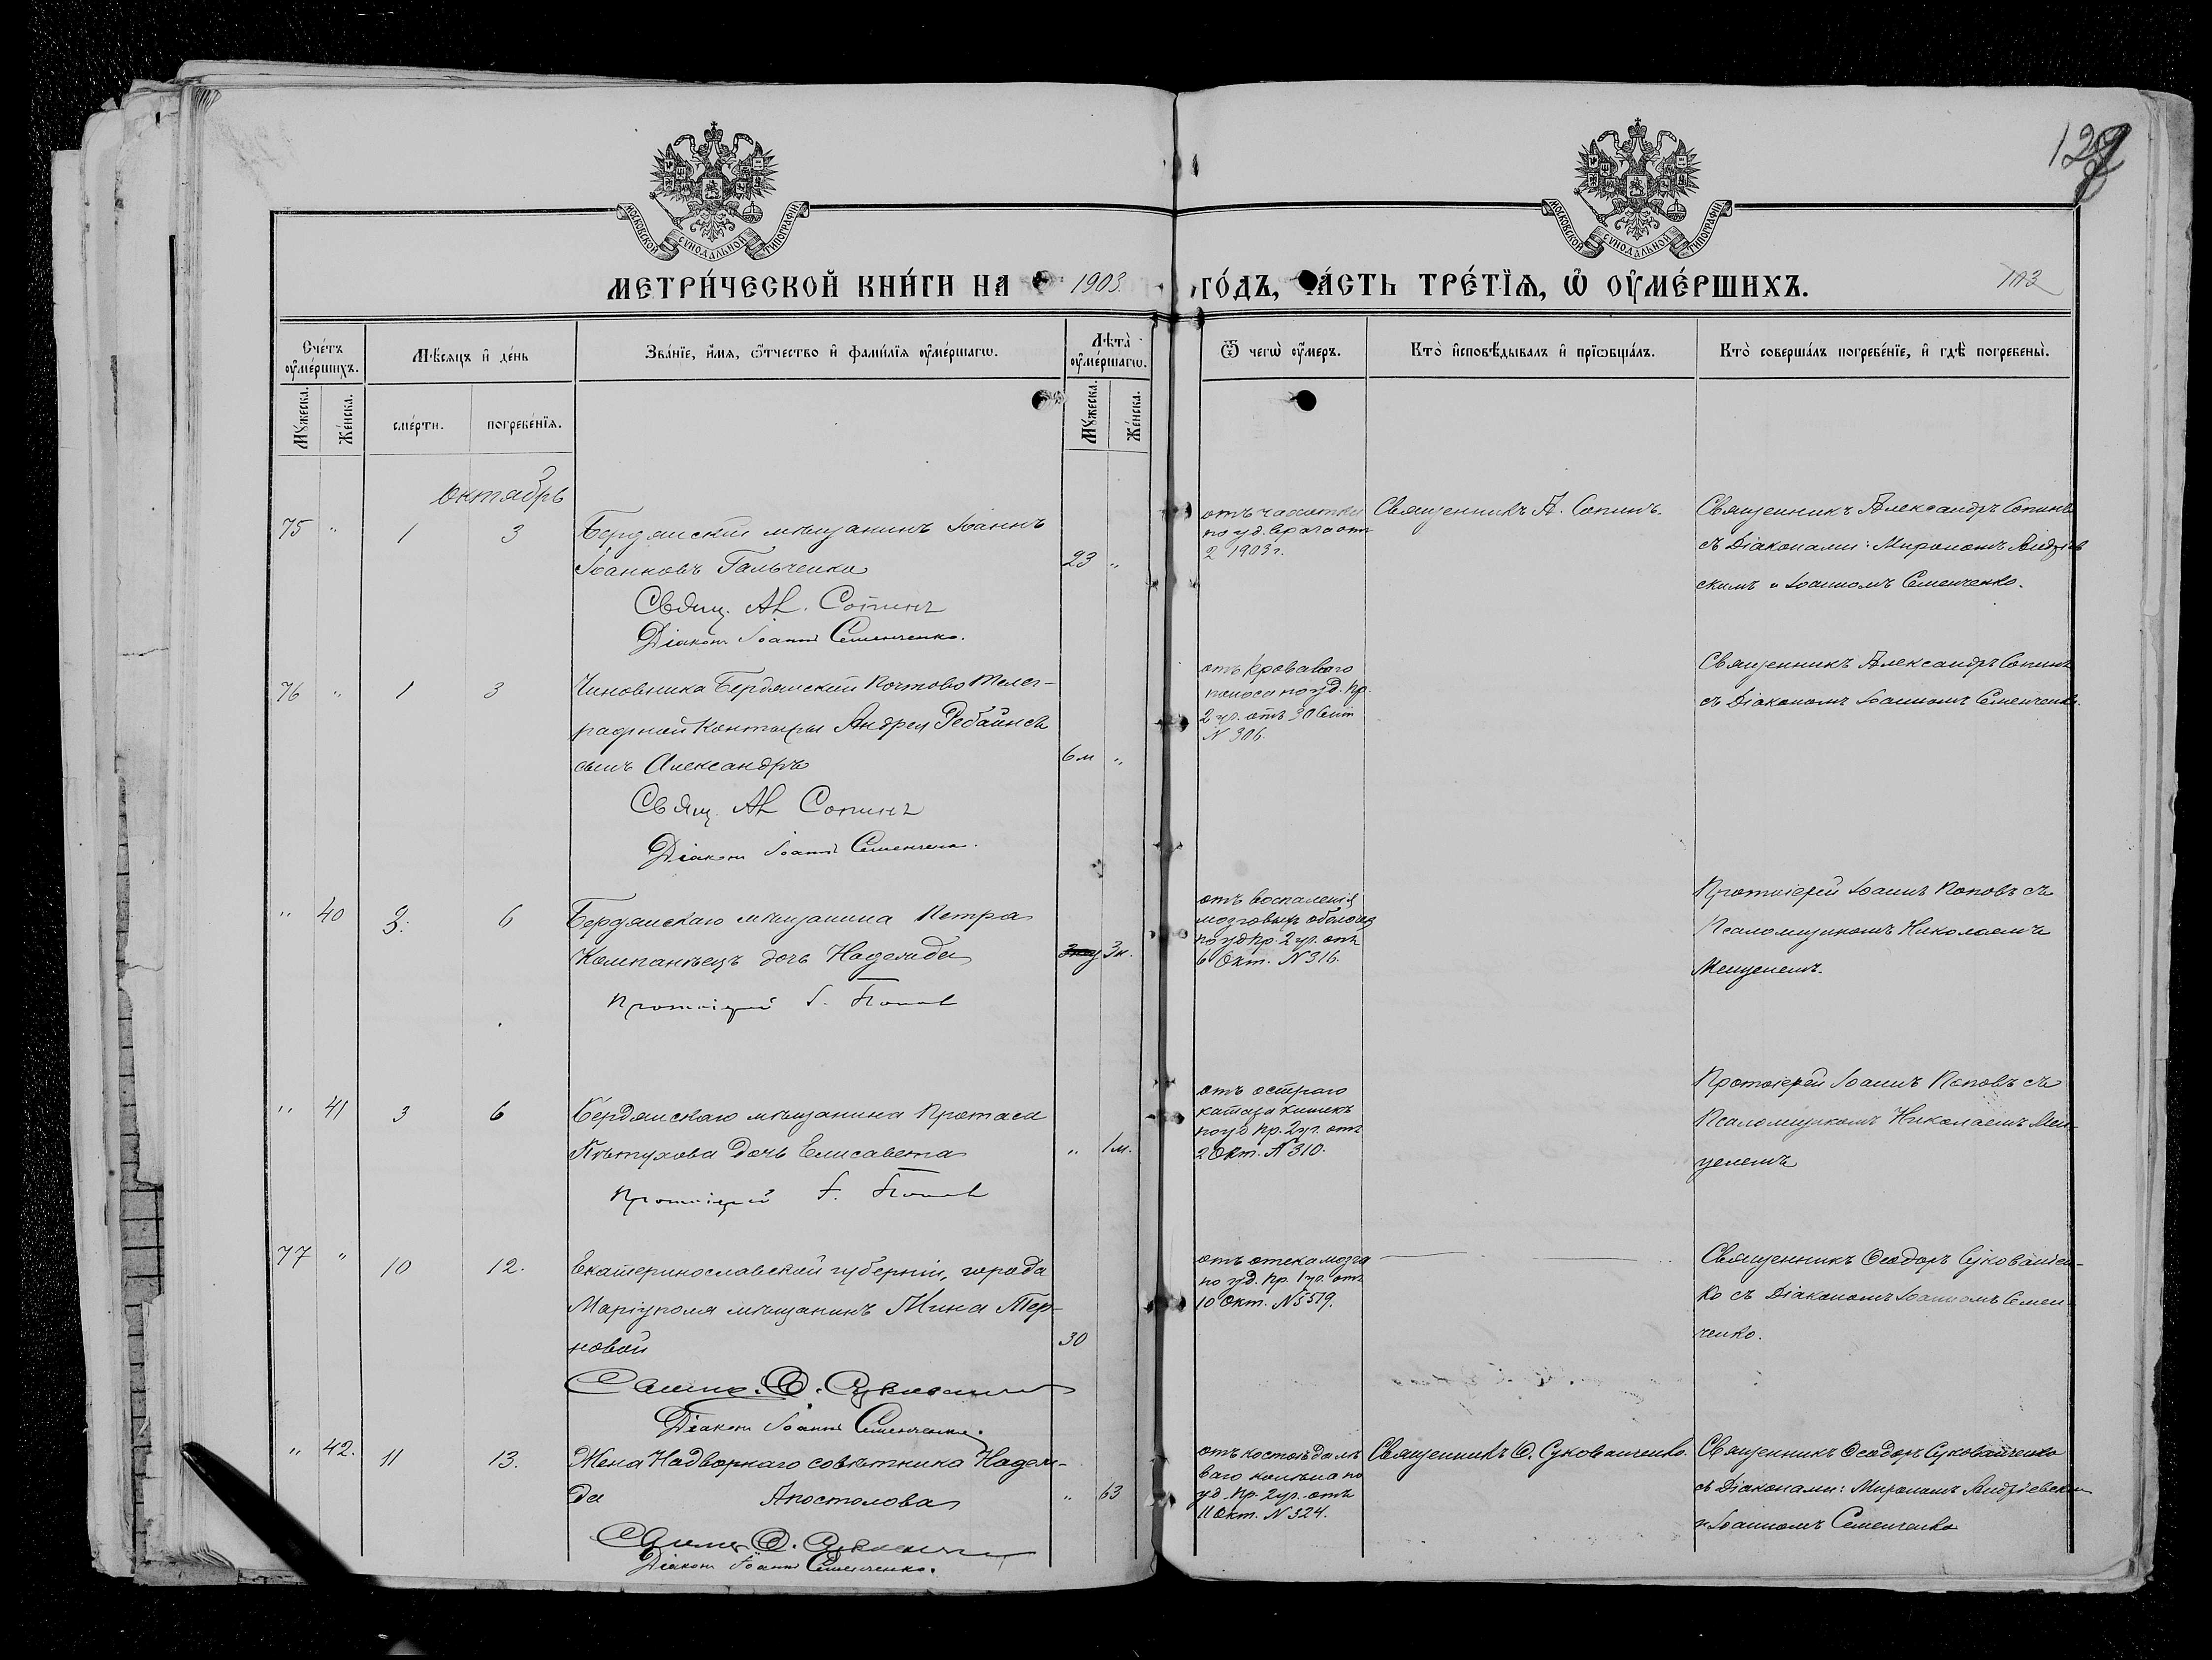 129
МОСКОВСКОЙ СѴНОДАЛЬНОЙ ТИПОГРАФІИ
МОСКОВСКОЙ СѴНОДАЛЬНОЙ ТИПОГРАФІИ
МЕТРИ́ЧЕСКОЙ КНИ́ГИ НА 1903 ГО́ДЪ, ЧА́СТЬ ТРЕ́ТІѦ, Ѽ ОУ҆МЕ́РШИХЪ.
103
Сче́тъ оу҆ме́ршихъ.
Мѣ́сѧцъ и҆ де́нь
Зва́нїе, и҆́мѧ, ѻ҆́тчество и҆ фами́лїѧ оу҆ме́ршагѡ.
Лѣ̑та̀ оу҆ме́ршагѡ.
Ѿ чегѡ̀ оу҆́меръ.
Кто̀ и҆сповѣ́дывалъ и҆ прїѡбща́лъ.
Кто̀ соверша́лъ погребе́нїе, и҆ гдѣ̀ погребены̀.
Мꙋ́жеска.
Же́нска.
сме́рти.
погребе́нїѧ.
Мꙋ́жеска.
Же́нска.
Октябрь
75 " 1 3
Бердянскій мѣщанинъ Іоаннъ
Іоанновъ Гальченко
23 "
Свящ. Ал. Сопинъ
Діаконъ Іоаннъ Семенченко.
отъ чахотки
по уд. врача отъ
2 1903 г.
Священникъ А. Сопинъ.
Священникъ Александръ Сопинъ
съ Діаконами: Мирономъ Андріев
скимъ и Іоанномъ Семенченко.
76 " 1 3
Чиновника Бердянской Почтово Телег-
рафной Конторы Андрея
сынъ Александръ
6 м "
Свящ. Ал Сопинъ
Діаконъ Іоаннъ Семенченко.
отъ кроваваго
поноса по уд. пр.
2 уч. отъ 30 Сент
N 306.
Священникъ Александръ Сопинъ
съ Діакономъ Іоанномъ Семенченко.
" 40 3. 6
Бердянскаго мѣщанина Петра
Компанѣецъ дочь Надежда
3 м.
Протоіерей І. Поповъ
отъ воспаленія
мозговыхъ оболочек
по уд пр. 2 уч. отъ
6 Окт. N 316.
Протоіерей Іоаннъ Поповъ съ
Псаломщикомъ Николаемъ
" 41 3 6
Бердянскаго мѣщанина Протаса
Пѣтухова дочь Елисавета
" 1 м.
Протоіерей І. Поповъ
отъ остраго
катара кишекъ
по уд пр. 2 уч. отъ
2 Окт. N 310.
Протоіерей Іоаннъ Поповъ съ
Псаломщикомъ Николаемъ
77 " 10 12.
Екатеринославской губерніи, города
Маріуполя мѣщанинъ Мина Тер-
новой
30
Діаконъ Іоаннъ Семенченко.
отъ отека мозга
по уд. пр. 1 уч. отъ
10 Окт. N 5519.
Священникъ Ѳеодоръ Суковатчен-
ко съ Діакономъ Іоанномъ Семен-
ченко.
" 42. 11 13.
Жена Надворнаго совѣтника Надеж-
да Апостолова
" 63
Діаконъ Іоаннъ Семенченко.
отъ
колѣна по
уд. пр. 2 уч. отъ
11 Окт. N 324.
Священникъ Ѳ. Суковатченко.
Священникъ Ѳеодоръ Суковатченко
съ Діаконами: Мирономъ Андріевским
и Іоанномъ Семенченко